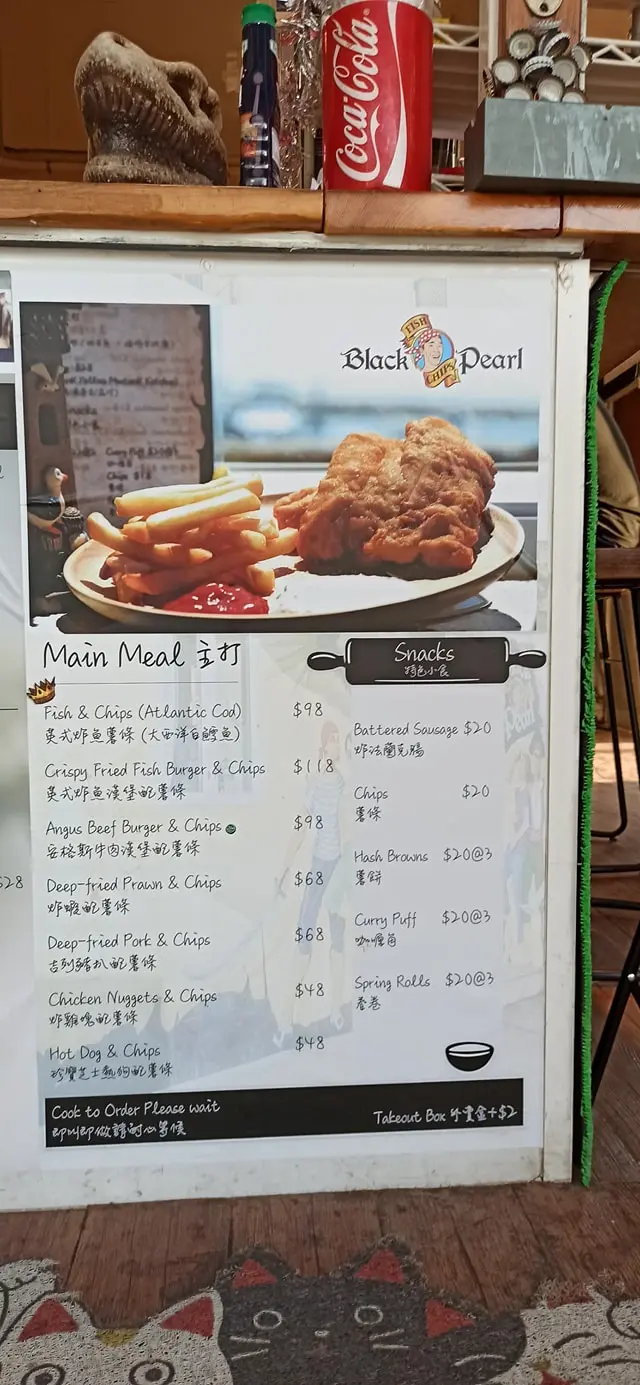 Coca-Cola
Black Pearl
FISH
CHIPS
Main Meal 主打
Fish & Chips (Atlantic Cod) $98
英式炸魚薯條 (大西洋白鱈魚)
Crispy Fried Fish Burger & Chips $118
英式炸魚漢堡配薯條
Angus Beef Burger & Chips $98
安格斯牛肉漢堡配薯條
Deep-fried Prawn & Chips $68
炸蝦配薯條
Deep-fried Pork & Chips $68
吉列豬扒配薯條
Chicken Nuggets & Chips $48
炸雞塊配薯條
Hot Dog & Chips $48
珍寶芝士熱狗配薯條
Snacks
特色小食
Battered Sausage $20
炸法蘭克腸
Chips $20
薯條
Hash Browns $20@3
薯餅
Curry Puff $20@3
咖喱角
Spring Rolls $20@3
春卷
Cook to Order Please wait
即叫即做請耐心等候
Takeout Box 外賣盒+$2